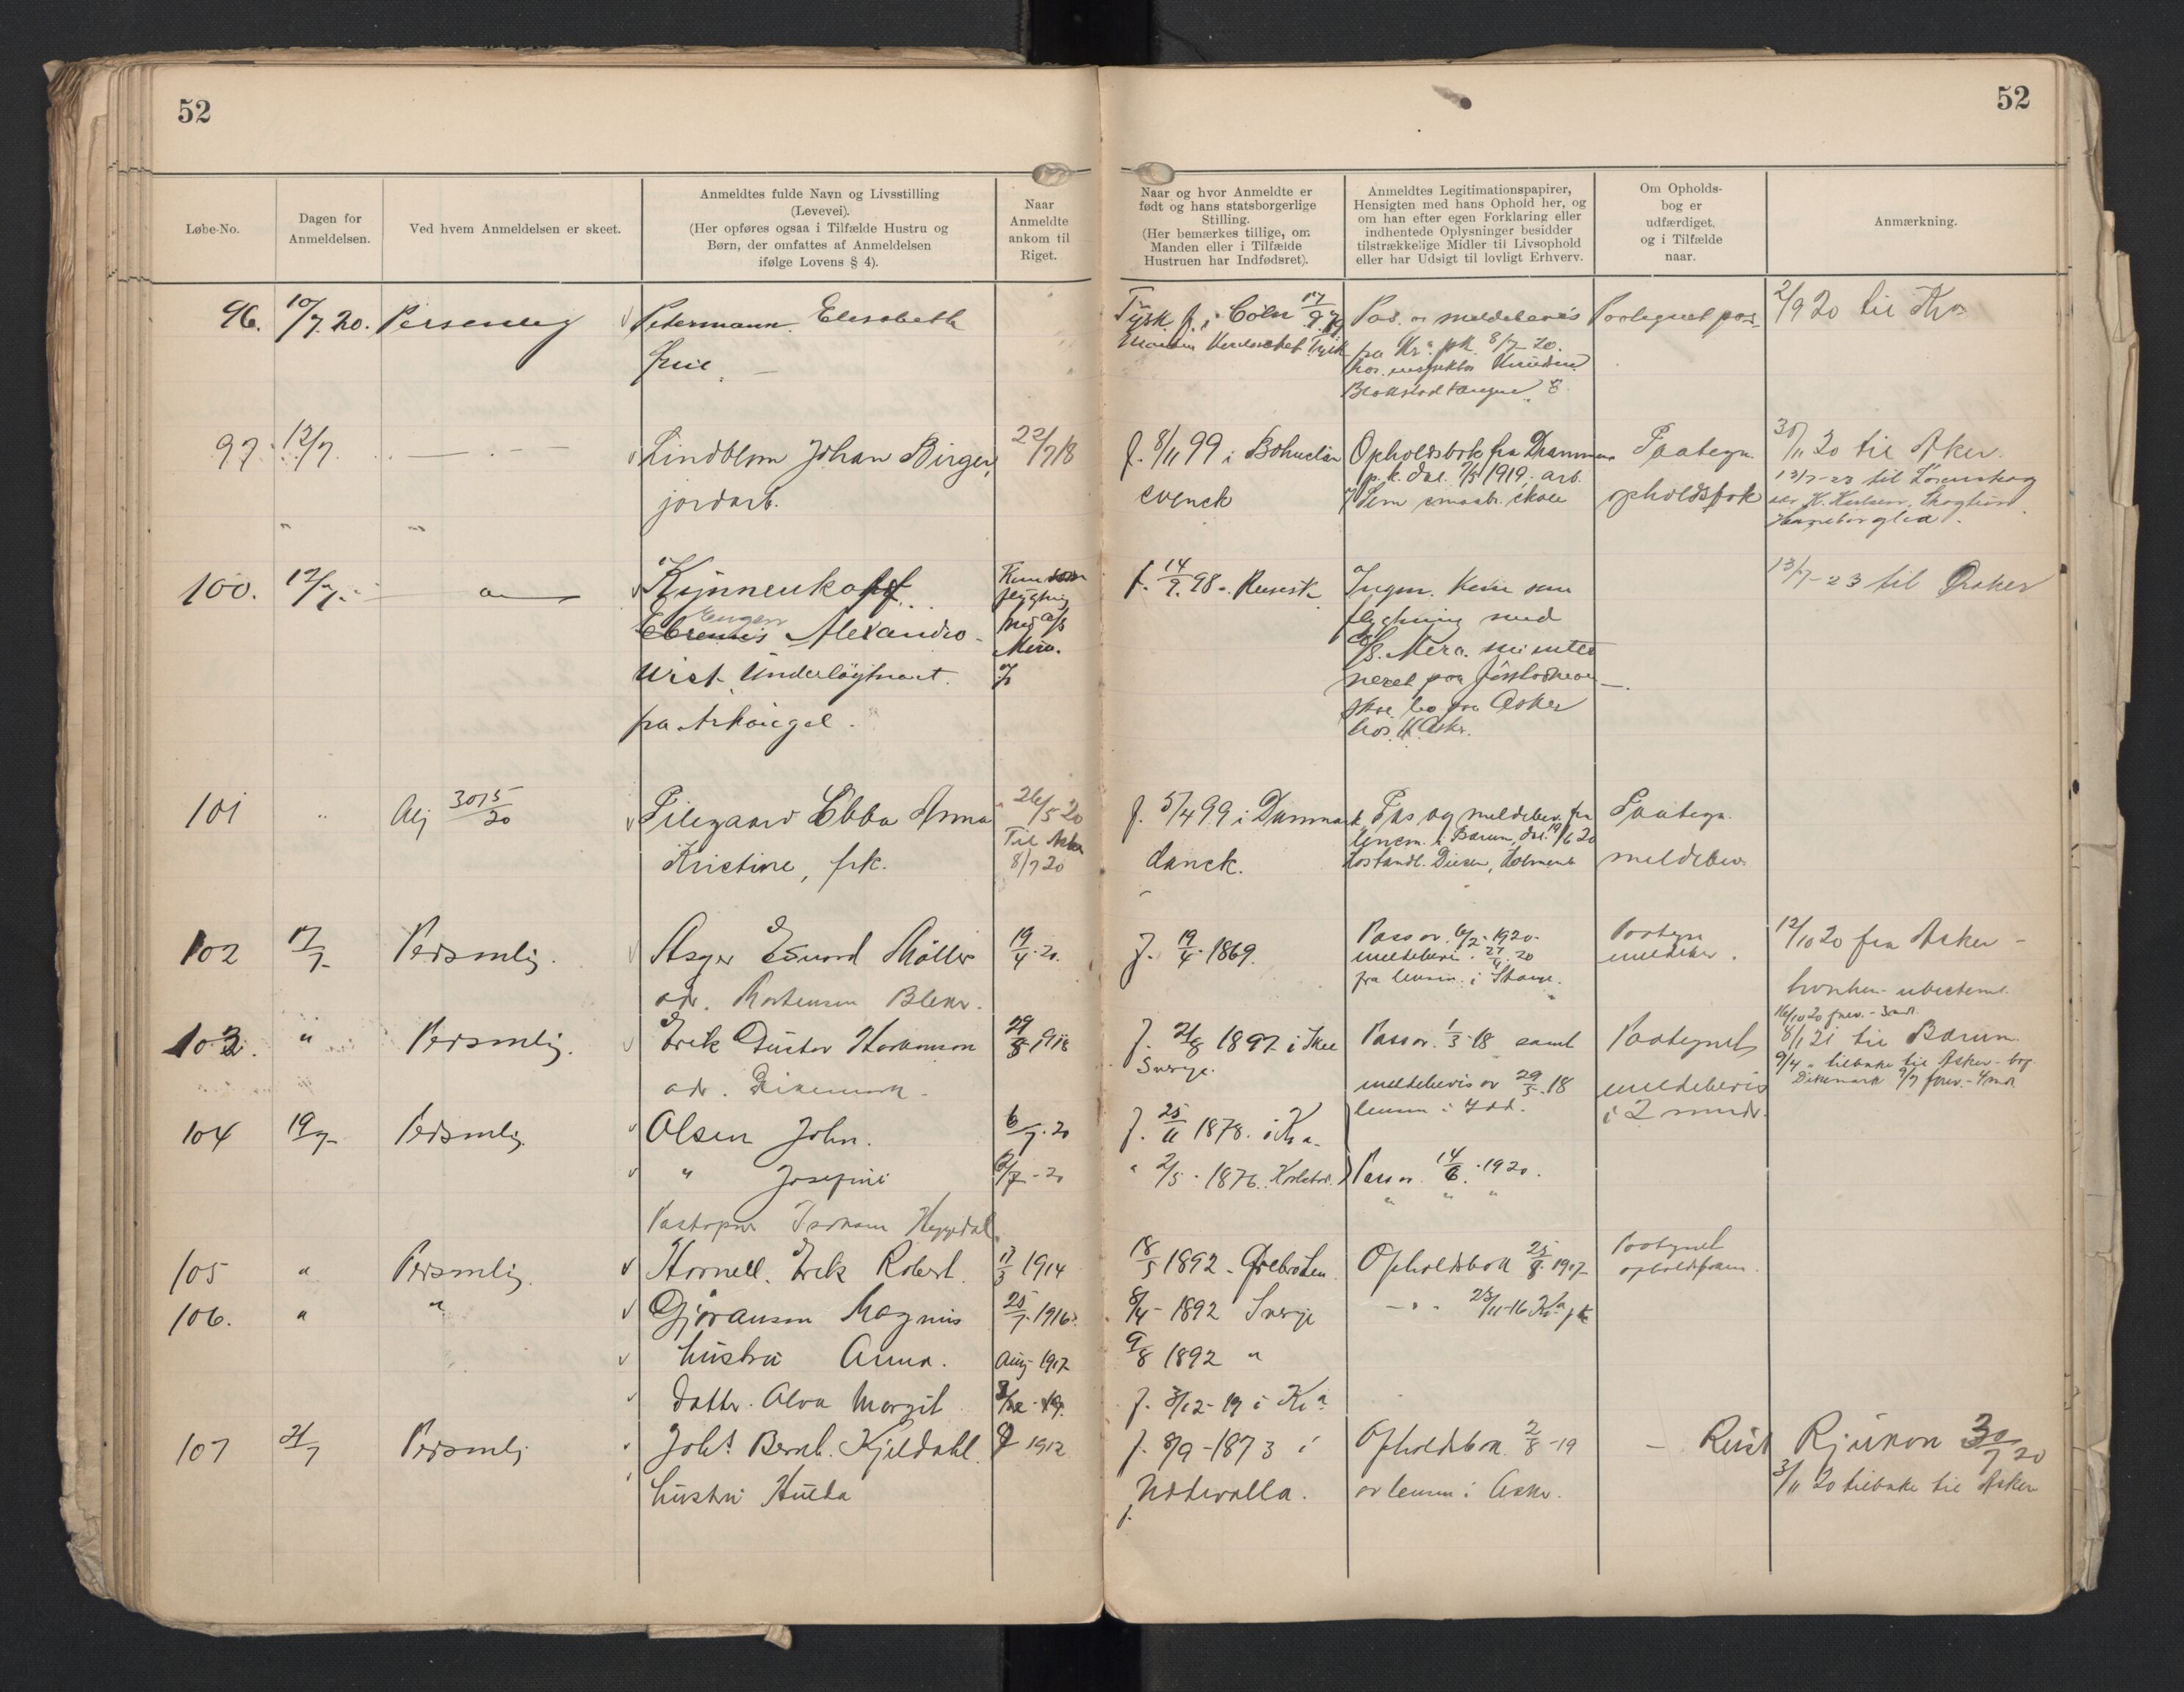 52
52
Løbe-No.
Dagen for
Anmeldelsen.
Ved hvem Anmeldelsen er skeet.
Anmeldtes fulde Navn og Livsstilling
(Levevei).
(Her opføres ogsaa i Tilfælde Hustru og
Børn, der omfattes af Anmeldelsen
ifølge Lovens § 4).
Naar
Anmeldte
ankom til
Riget.
Naar og hvor Anmeldte er
født og hans statsborgerlige
Stilling.
(Her bemærkes tillige, om
Manden eller i Tilfælde
Hustruen har Indfødsret).
Anmeldtes Legitimationspapirer,
Hensigten med hans Ophold her, og
om han efter egen Forklaring eller
indhentede Oplysninger besidder
tilstrækkelige Midler til Livsophold
eller har Udsigt til lovligt Erhverv.
Om Opholds-
bog er
udfærdiget,
og i Tilfælde
naar.
Anmærkning.
96. 10/7.20. Personlig Petermann. Elisabeth Tysk f. i Cöln Pas og meldebevis Paategnet pas 2/9 20 til Kra
Frue fra Kra pk. 8/7 20.
hos inspektør
97. 12/7. Lindblom Johan Birger, 22/7 18 f. 8/11 99 i Bohuslän Opholdsbok fra Drammen Paategn. 30/11 20 til Asker.
jordarb. svensk p.k. dat. 1919. arb. opholdsbok 13/7-23 til Lørenskog
Sem smaabr. skole
100. 12/7. Kijnneukoff Kom som f. 14/9. 98. Russisk Ingen. Kom som 13/7-23 til Asker
Eugen Alexandro- flygtning flygtning med
wist. Underløjtnant. med a/s Mero. S/S. Mero.
fra Arkangel. skal bo paa Asker
hos
101 " Alj 3015/20 Pilegaard Ebba Anna 26/5 20 f. 5/4 99 i Danmark, Pas og meldebev. fra Paategn.
Til Asker lensm. i Bærum, dat. 19/6 20
Kristine, frk. 8/7 20 dansk. meldebev.
102 17/7 Personlig. Asger Møller 19/4.20. f. 19/4. 1869. Pass av 6/2-1920- Paategn 12/10 20 fra Asker -
meldebevis 27/4 20 meldebev.
adr. Mortensen fra lensm. i Stange. hvorhen ubestemt.
103. " Personlig. Erik Gustav Haakonson 29/8 1918 f. 21/8 1897 i Skee Pass av. 1/3-18 samt Paategnet 8/1 21 til Bærum
Sverge. 9/4 " tilbake til Asker
adr. Dikemark. meldebevis av 29/5.18 meldebevis Dikemark
lensm. i Idd. i 2 mndr.
104 19/7 Personlig Olsen John. 6/7.20 f. 25/11 1878. i Kra.
" Josefine 6/7-20 " 2/5-1876. Karlstad. Pass av. 14/6.1920.
" " "
Pastopner Isaksen Heggedal
105 " Personlig. Hornell, Erik Robert. 17/3 1914 18/5 1892. Opholdsbok 25/8 1917 Paategnet
106. " " Gjøranson Magnus 25/7 1916. 8/4-1892 Sverge 23/11-16 Kra pk
hustru Anna. Aug 1917 9/8 1892 "
datter. Alva Margit f. 3/12-19 i Kra
107 21/7 Personlig Johs Bernh. Kjeldahl 1912 f. 8/9-1873 i Opholdsbok 2/8-19 - Reist Rjukan 30/7 20
hustru Hulda Uddevalla. av lensm. i Asker. 3/11 20 tilbake til Asker
f.